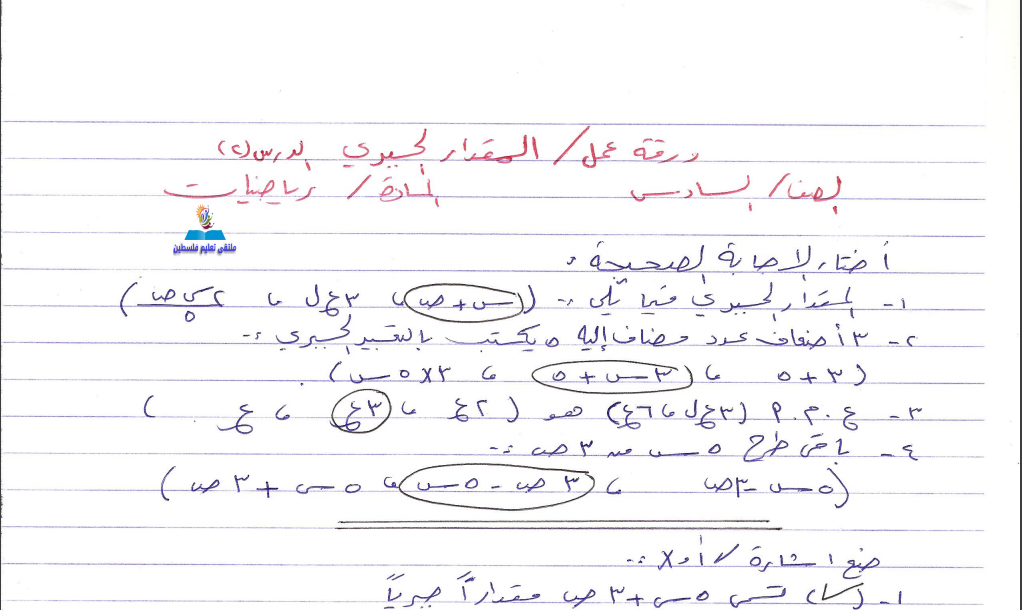 ورقة عمل / المقدار الجبري الدرس (٢)
الصف / السادس المادة / رياضيات
ملتقى تعليم فلسطين
أختار الإجابة الصحيحة :
١- المقدار الجبري فيما يلي :- (س + ص ، ٣ع ل ، ٢س ص / ٥)
٢- ٣ أضعاف عدد مضاف إليه ٥ يكتب بالتعبير الجبري :-
(٣ + ٥ ، ٣س + ٥ ، ٣×٥س)
٣- ع.م.أ (٣ع ل ، ٦ع) هو (٢ع ، ٣ع ، ع)
٤- باقي طرح ٥س من ٣ص :-
(٥س - ٣ص ، ٣ص - ٥س ، ٥س + ٣ص)
ضع اشارة ✓ أو × :-
١- (✓) تسمى ٥س + ٣ص مقداراً جبرياً